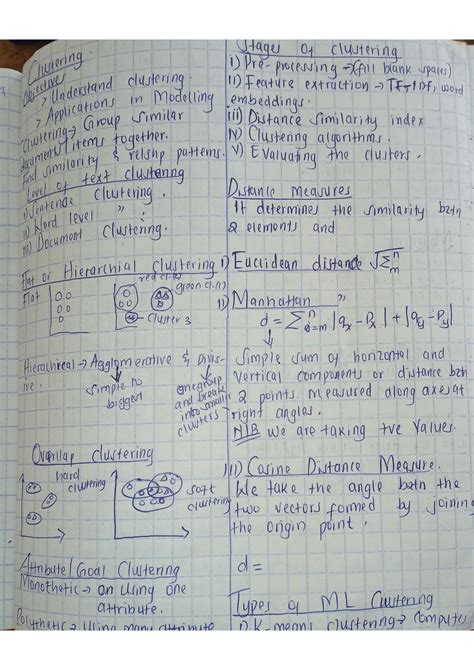 Clustering.
Objectives
> Understand clustering.
> Applications in Modelling
Clustering → Group similar
documents/items together.
Find similarity & relshp patterns.
Level of text clustering
i) Sentence Clustering.
ii) Word level " .
iii) Document Clustering.
Flat or Hierarchial Clustering
Flat
red cl.(2)
green cl.(1)
Cluster 3
Hierarchical → Agglomerative & Divis-
ive.
simple to
biggest
one group
and break
into smaller
clusters
Overlap clustering
hard
clustering
soft
clustering
Attribute/Goal Clustering
Monothetic → on using one
attribute.
Polythetic → Using many attribute
Stages of clustering
i) Pre-processing → (fill blank spaces)
ii) Feature extraction → TF-IDF, word
embeddings.
iii) Distance similarity index
iv) Clustering algorithms.
v) Evaluating the clusters.
Distance Measures
It determines the similarity betn
2 elements and
i) Euclidean distance √Σ n m
ii) Manhattan "
d = Σ n |qx - px| + |qy - py|
simple sum of horizontal and
vertical components or distance btn
2 points measured along axes at
right angles.
N/B we are taking +ve values.
iii) Cosine Distance Measure.
We take the angle betn the
two vectors formed by joining
the origin point.
d =
Types of ML Clustering
K-means clustering → Computes